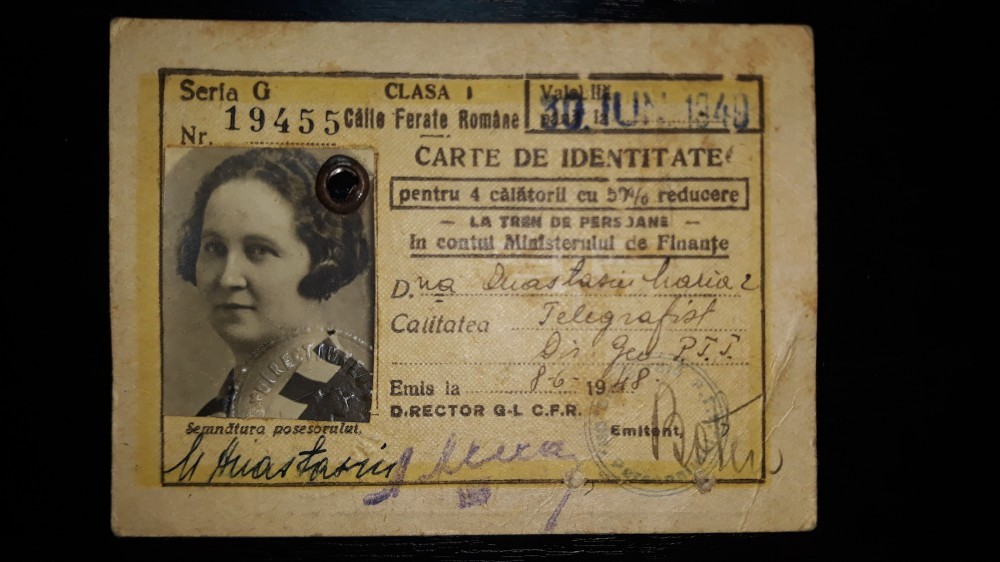 Seria G
Nr. 19455
CLASA I
Căile Ferate Române
30. IUN. 1949
CARTE DE IDENTITATE
pentru 4 călătorii cu 50% reducere
— LA TREN DE PERSOANE —
În contul Ministerului de Finanțe
D.na Anastasiu Maria
Calitatea Telegrafist
Dir Gen P.T.T.
Emis la 8-6- 1948.
DIRECTOR G-L C.F.R.
Emitent,
Semnătura posesorului,
M Anastasiu